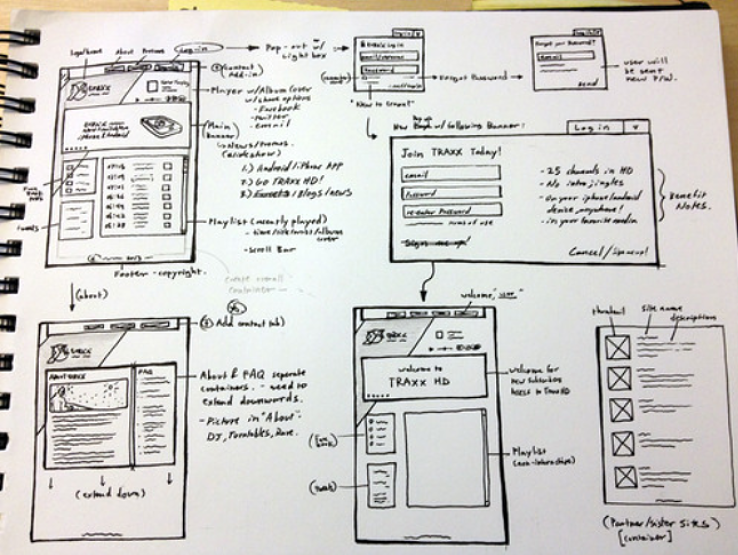 About
Log-in
Pop-out w/
Light box
① Contact
Add-in
TRAXX
Player w/Album Cover
w/share options
- Facebook
- twitter
- email
Main
Banner
News/Promos.
(slideshow)
1.) Android/iPhone App
2.) Go TRAXX HD!
3.) Blogs/news
Playlist (recently played)
- Scroll Bar
tweets
Footer - copyright.
create overall
container
Log in
email/username
password
Forgot Password
"New to traxx?"
Forgot your Password?
email
send
user will
be sent
new P/W.
Pop up
New w/ following Banner:
Log in
Join TRAXX Today!
email
Password
re-enter Password
terms of use
Sign me up!
- 25 channels in HD
- No intro, jingles
- on your iphone/android
device, anywhere!
- in your favorite media
Benefit
Notes.
Cancel/Sign me up!
(about)
① Add contact tab
TRAXX
About TRAXX
FAQ
About & FAQ separate
containers. - need to
extend downwards.
- Picture in "About":
DJ, Turntables, Rave.
(extend down)
welcome, "user"
TRAXX
welcome to
TRAXX HD
welcome for
new subscribers
(tweets)
Playlist
thumbnail
Site name
descriptions
(Partner/Sister Sites)
[container]